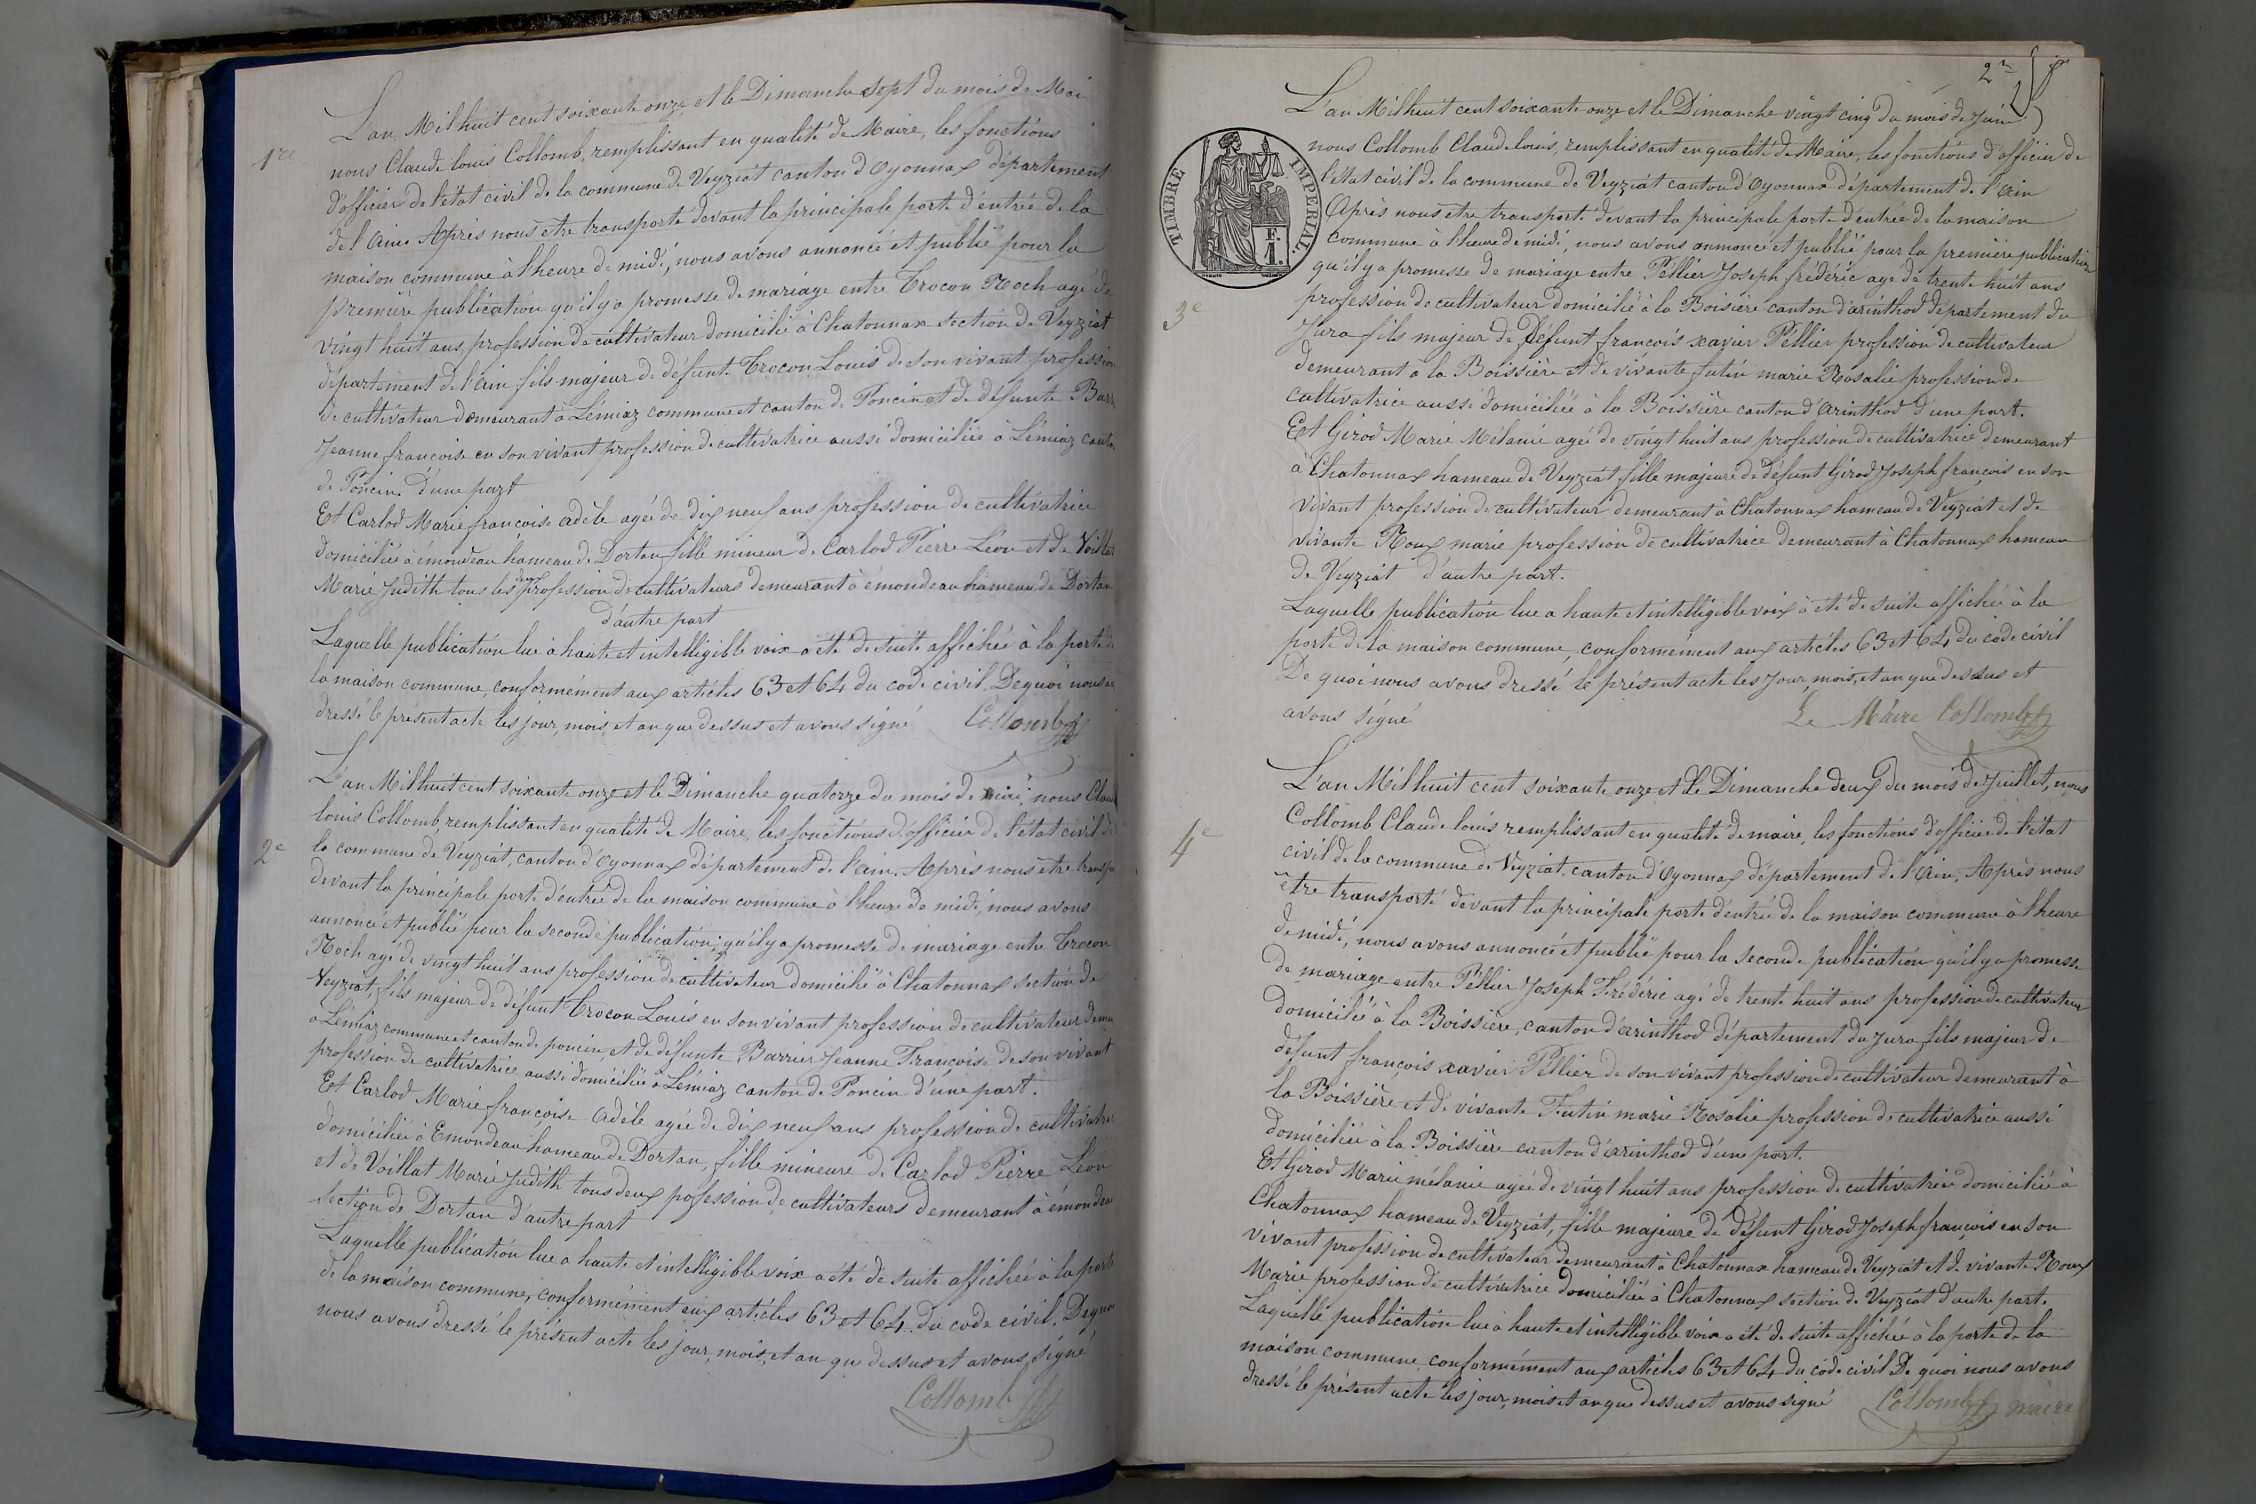 1re
L'an Mil huit cent soixante onze et le Dimanche sept du mois de Mai
nous Claude louis Collomb, remplissant en qualité de Maire, les fonctions
d'officier de l'état civil de la commune de Veyziat canton d'Oyonnax département
de l'Ain. Après nous être transporté devant la principale porte d'entrée de la
maison commune à l'heure de midi, nous avons annoncé et publié pour la
première publication qu'il y a promesse de mariage entre Trocon Roch agé de
vingt huit ans, profession de cultivateur domicilié à Chatonnax section de Veyziat
département de l'Ain fils majeur de défunt Trocon Louis de son vivant profession
de cultivateur demeurant à Lémiaz commune et canton de Poncin et de défunte Barr
Jeanne françoise en son vivant profession de cultivatrice aussi domiciliée à Lémiaz canton
de Poncin. d'une part
Et Carlod Marie françoise adèle agée de dix neuf ans profession de cultivatrice
domiciliée à émondeau hameau de Dortan fille mineur de Carlod Pierre Léon et de Voillat
Marie Judith tous les deux profession de cultivateurs demeurant à émondeau hameau de Dortan
d'autre part
Laquelle publication lue à haute et intelligible voix a été de suite affichée à la porte de
la maison commune, conformément aux articles 63 et 64 du code civil. De quoi nous av
dressé le présent acte les jour, mois et an que dessus et avons signé Collomb
2e
L'an Mil huit cent soixante onze et le Dimanche quatorze du mois de mai nous Claud
louis Collomb, remplissant en qualité de Maire, les fonctions d'officier de l'état civil de
la commune de Veyziat, canton d'Oyonnax département de l'Ain. Après nous être transpo
devant la principale porte d'entrée de la maison commune à l'heure de midi, nous avons
annoncé et publié pour la seconde publication, qu'il y a promesse de mariage entre Trocon
Roch agé de vingt huit ans profession de cultivateur domicilié à Chatonnax section de
Veyziat, fils majeur de défunt Trocon Louis en son vivant profession de cultivateur demeu
à Lémiaz commune et canton de poncin et de défunte Barrier Jeanne Françoise de son vivant
profession de cultivatrice aussi domiciliée à Lémiaz canton de Poncin d'une part.
Et Carlod Marie françoise Adèle agée de dix neuf ans profession de cultivatrice
domiciliée à Emondeau hameau de Dortan, fille mineure de Carlod Pierre Léon
et de Voillat Marie Judith tous deux pofession de cultivateurs demeurant à émondeau
section de Dortan d'autre part
Laquelle publication lue a haute et intelligible voix a été de suite affichée à la porte
de la maison commune, conformément aux articles 63 et 64 du code civil. De quoi
nous avons dressé le présent acte les jour, mois, et an que dessus et avons signé
Collomb
2e
TIMBRE IMPERIAL.
F.
1.
3e
L'an Mil huit cent soixante onze et le Dimanche vingt cinq du mois de Juin
nous Collomb Claude louis, remplissant en qualité de Maire, les fonctions d'officier de
l'état civil de la commune de Veyziat canton d'Oyonnax département de l'Ain
Après nous être transporté devant la principale porte d'entrée de la maison
commune à l'heure de midi, nous avons annoncé et publié pour la première publication
qu'il y a promesse de mariage entre Péllier Joseph frédéric agé de trente huit ans
profession de cultivateur domicilié à la Boisière canton d'arinthod département du
Jura fils majeur de Défunt françois xavier Péllier profession de cultivateur
demeurant à la Boissière et de vivante futin marie Rosalie profession de
cultivatrice aussi domiciliée à la Boissière canton d'Arinthod d'une part.
Et Girod Marie Mélanie agée de vingt huit ans profession de cultivatrice demeurant
à Chatonnax hameau de Veyziat fille majeure de défunt Girod Joseph françois en son
vivant profession de cultivateur demeurant à Chatonnax hameau de Veyziat et de
vivante Roux marie profession de cultivatrice demeurant à Chatonnax hameau
de Veyziat d'autre part.
Laquelle publication lue a haute et intelligible voix à été de suite affichée à la
porte de la maison commune, conformément aux articles 63 et 64 du code civil
De quoi nous avons dressé le présent acte les jour, mois, et an que dessus et
avons signé Le Maire Collomb
4e
L'an Mil huit cent soixante onze et le Dimanche deux du mois de Juillet, nous
Collomb Claude louis remplissant en qualité de maire, les fonctions d'officier de l'état
civil de la commune de Veyziat, canton d'Oyonnax département de l'Ain. Après nous
être transporté devant la principale porte d'entrée de la maison commune à l'heure
de midi, nous avons annoncé et publié pour la seconde publication qu'il y a promesse
de mariage entre Péllier Joseph Frédéric agé de trente huit ans profession de cultivateur
domicilié à la Boissière, canton d'arinthod département du Jura, fils majeur de
défunt françois xavier Péllier de son vivant profession de cultivateur demeurant à
la Boissière et de vivante Futin marie Rosalie profession de cultivatrice aussi
domiciliée à la Boissière canton d'arinthod d'une part.
Et Girod Marie mélanie agée de vingt huit ans profession de cultivatrice domiciliée à
Chatonnax hameau de Veyziat, fille majeure de défunt Girod Joseph françois en son
vivant profession de cultivateur demeurant à Chatonnax hameau de Veyziat et de vivante Roux
Marie profession de cultivatrice domiciliée à Chatonnax section de Veyziat d'autre part.
Laquelle publication lue à haute et intelligible voix a été de suite affichée à la porte de la
maison commune conformément aux articles 63 et 64 du code civil De quoi nous avons
dressé le présent acte les jour, mois et an que dessus et avons signé Collomb maire